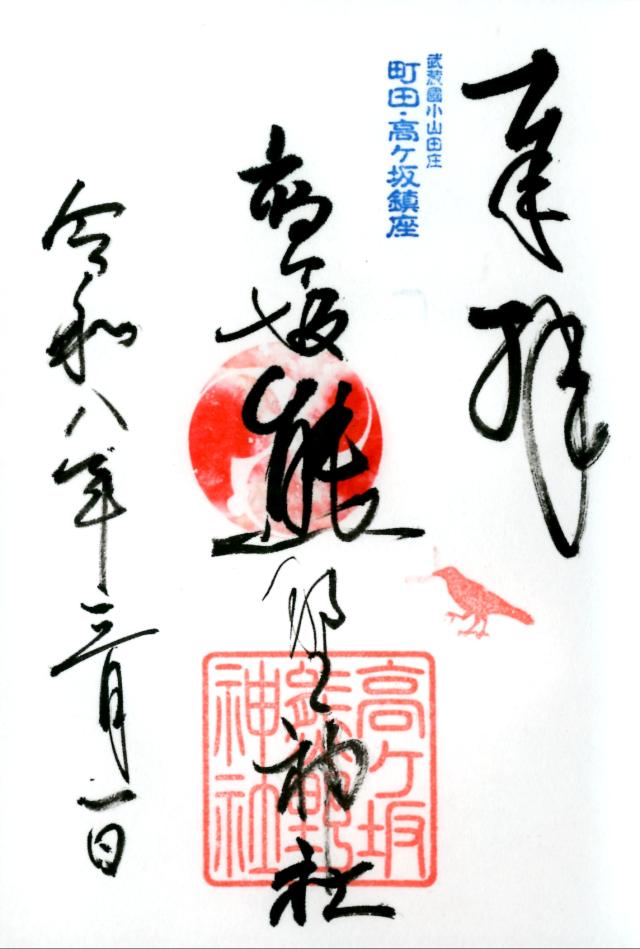 奉拝
武蔵國小山田庄
町田・高ヶ坂鎮座
高ヶ坂熊野神社
高ケ坂
熊野
神社
令和八年三月一日